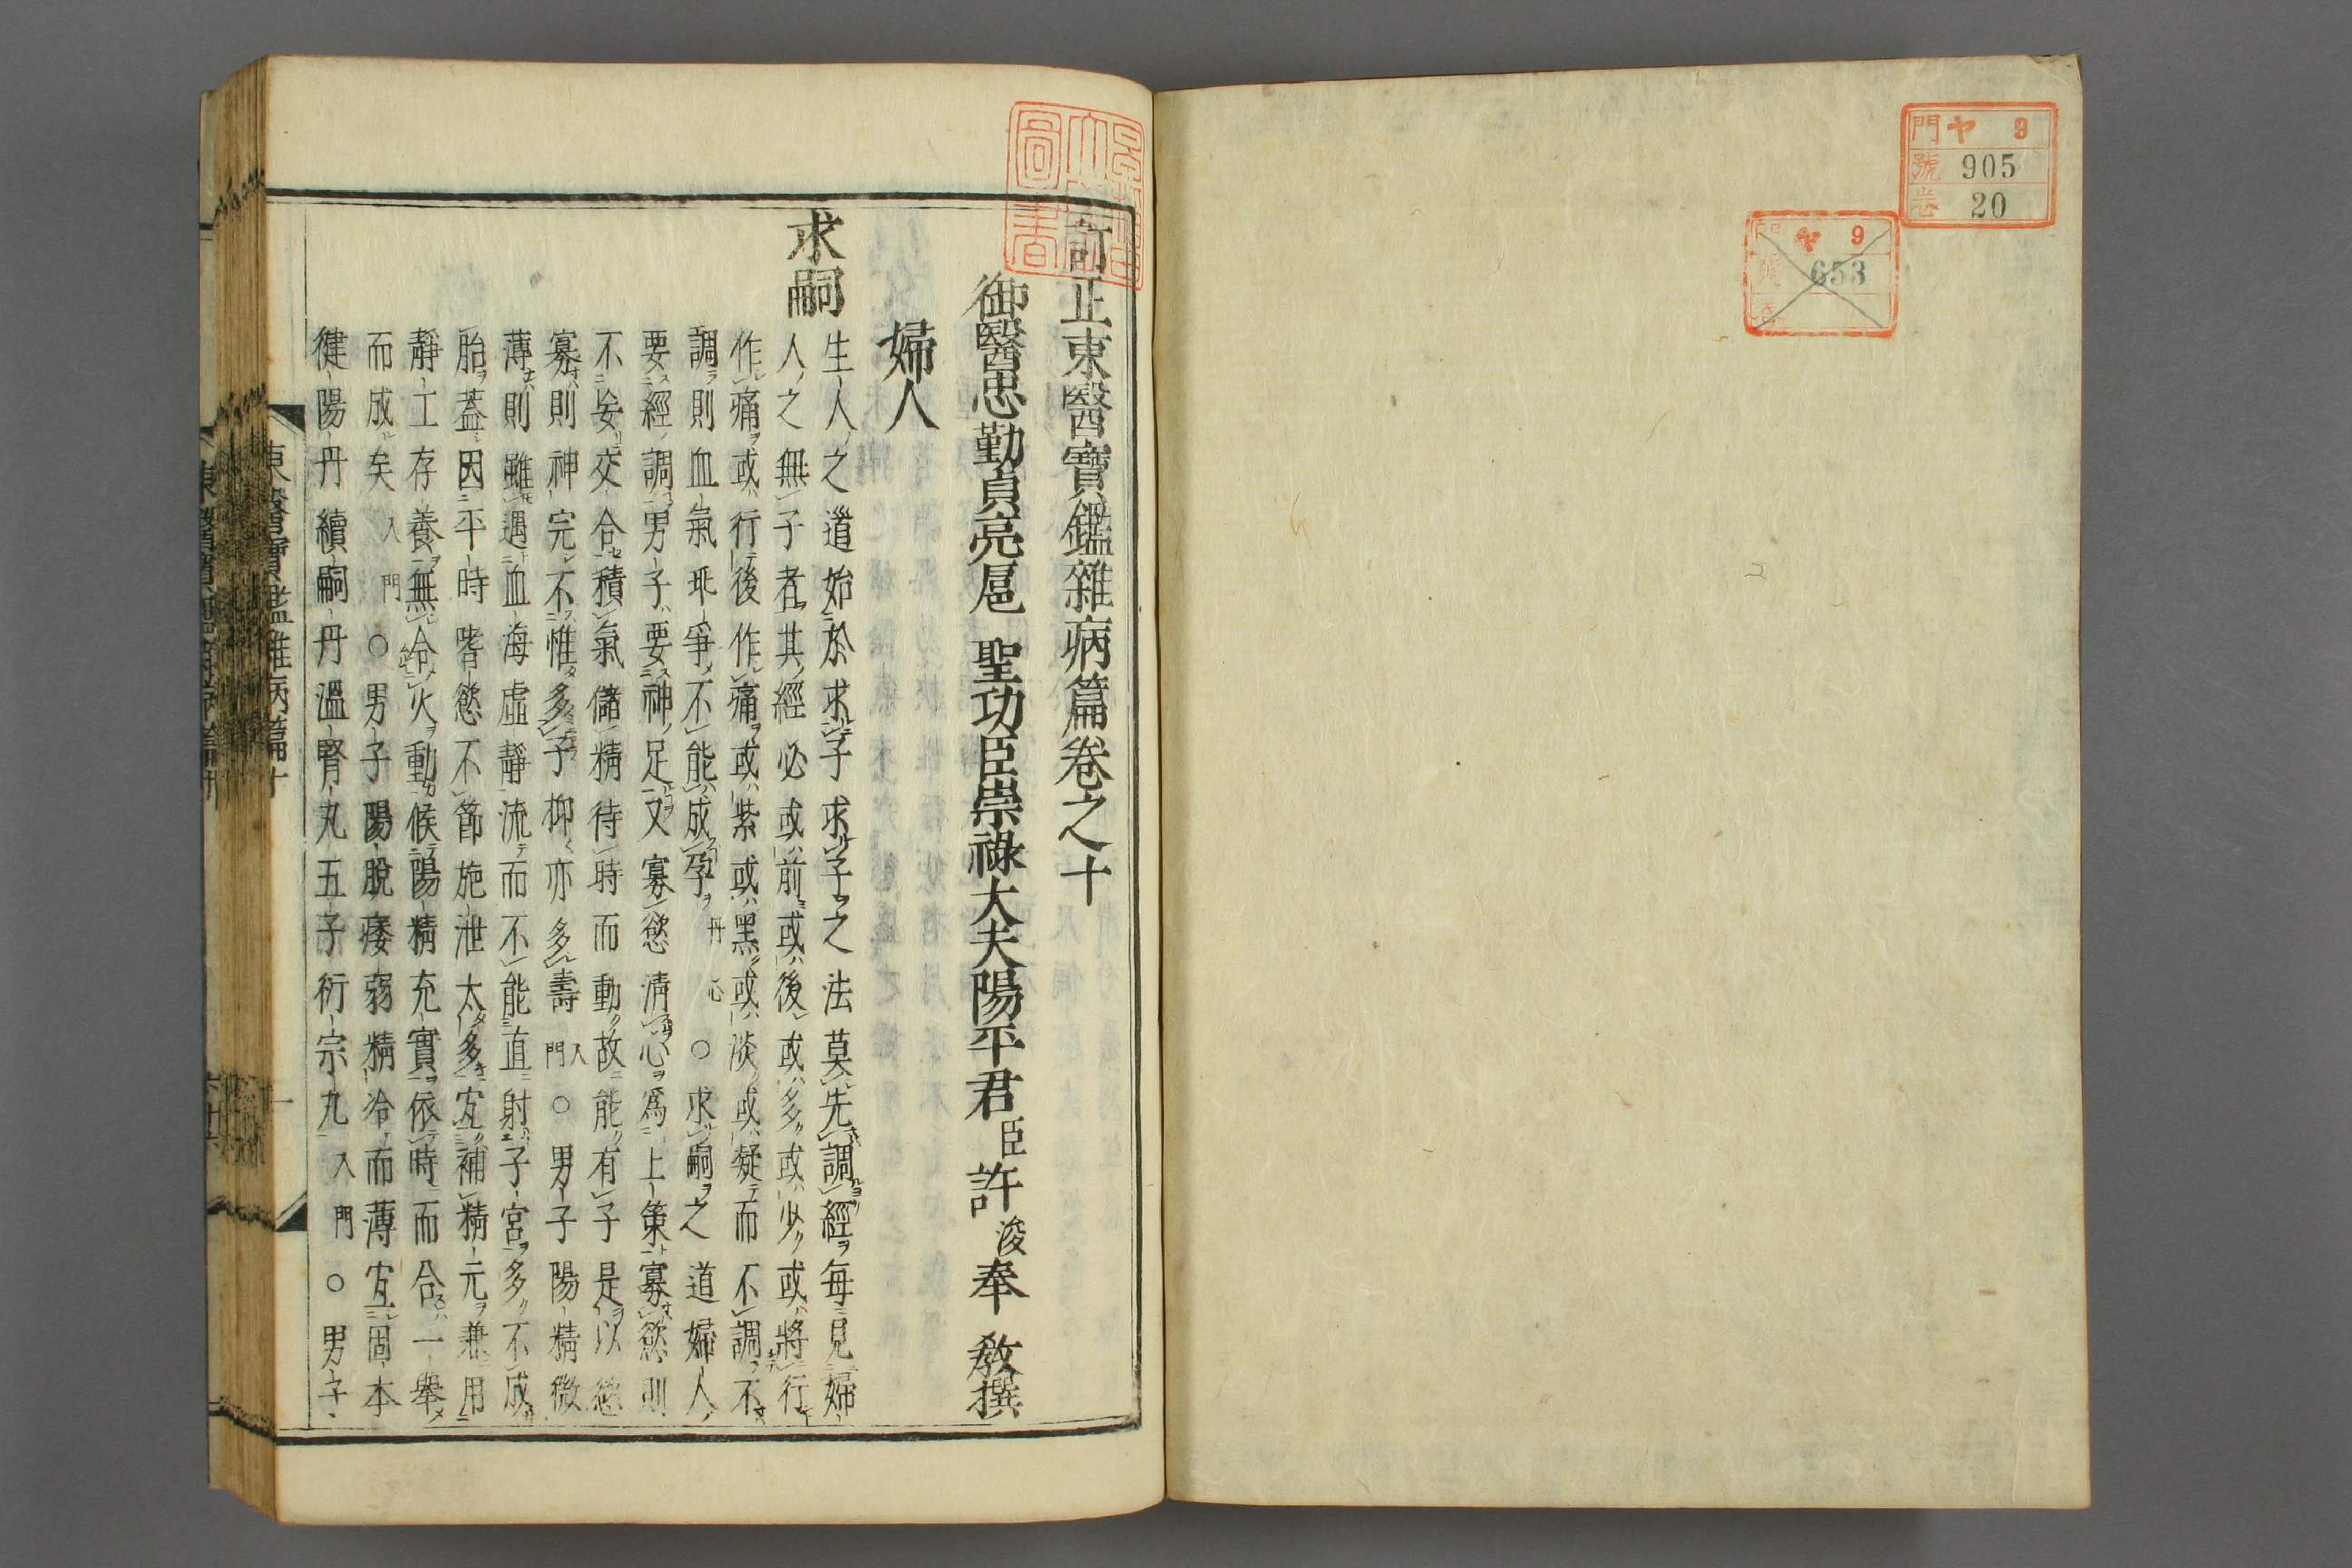 門 ヤ 9
號 905
卷 20
ヤ 9
653
訂正東醫寶鑑雜病篇卷之十
御醫忠勤貞亮扈 聖功臣崇祿大夫陽平君臣許浚奉 敎撰
婦人
求嗣
生人之道始於求子求子之法莫先調經每見婦
人之無子者其經必或前或後或多或少或將行
作痛或行後作痛或紫或黑或淡或凝而不調不
調則血氣乖爭不能成孕丹心○求嗣之道婦人
要經調男子要神足又寡慾淸心爲上策寡慾則
不妄交合積氣儲精待時而動故能有子是以慾
寡則神完不惟多子抑亦多壽入門○男子陽精微
薄則雖遇血海虛靜流而不能直射子宮多不成
胎蓋因平時嗜慾不節施泄太多宜補精元兼用
靜工存養無令火動候陽精充實依時而合一擧
而成矣入門○男子陽脫痿弱精冷而薄宜固本
健陽丹續嗣丹溫腎丸五子衍宗丸入門○男子
東醫寶鑑雜病篇十
一